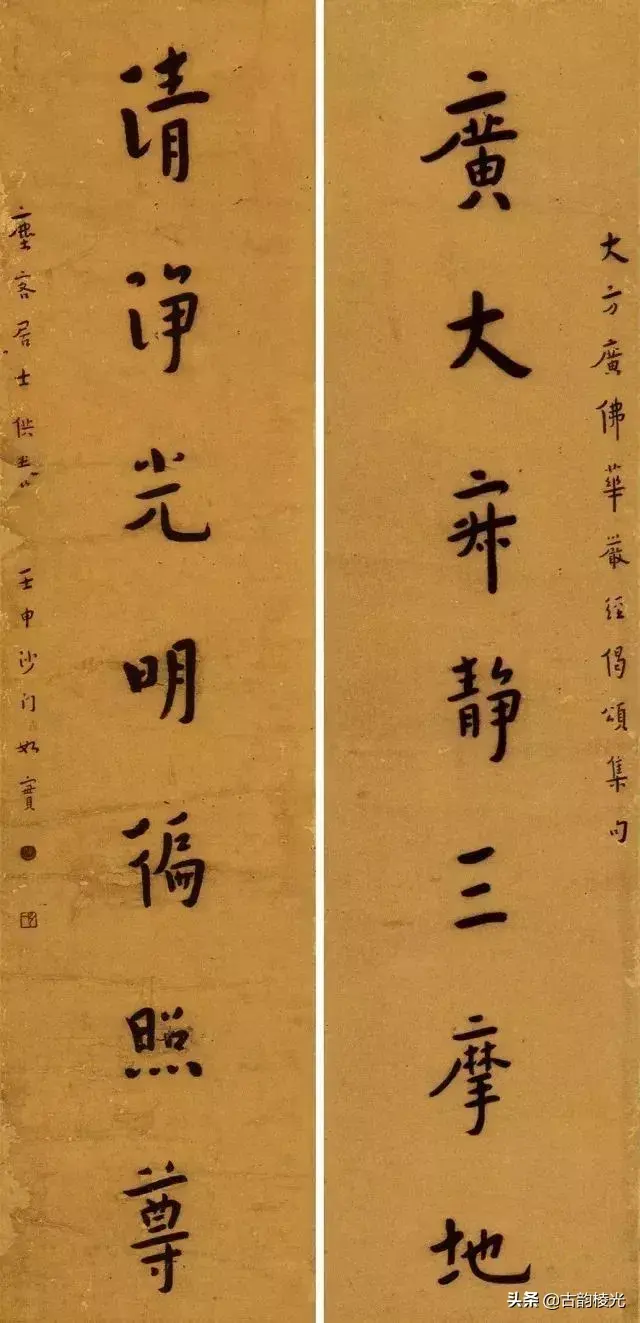 大方廣佛華嚴經偈頌集句
廣大寂静三摩地
清淨光明徧照尊
塵客居士供養 壬申沙门如實
头条 @古韵棱光